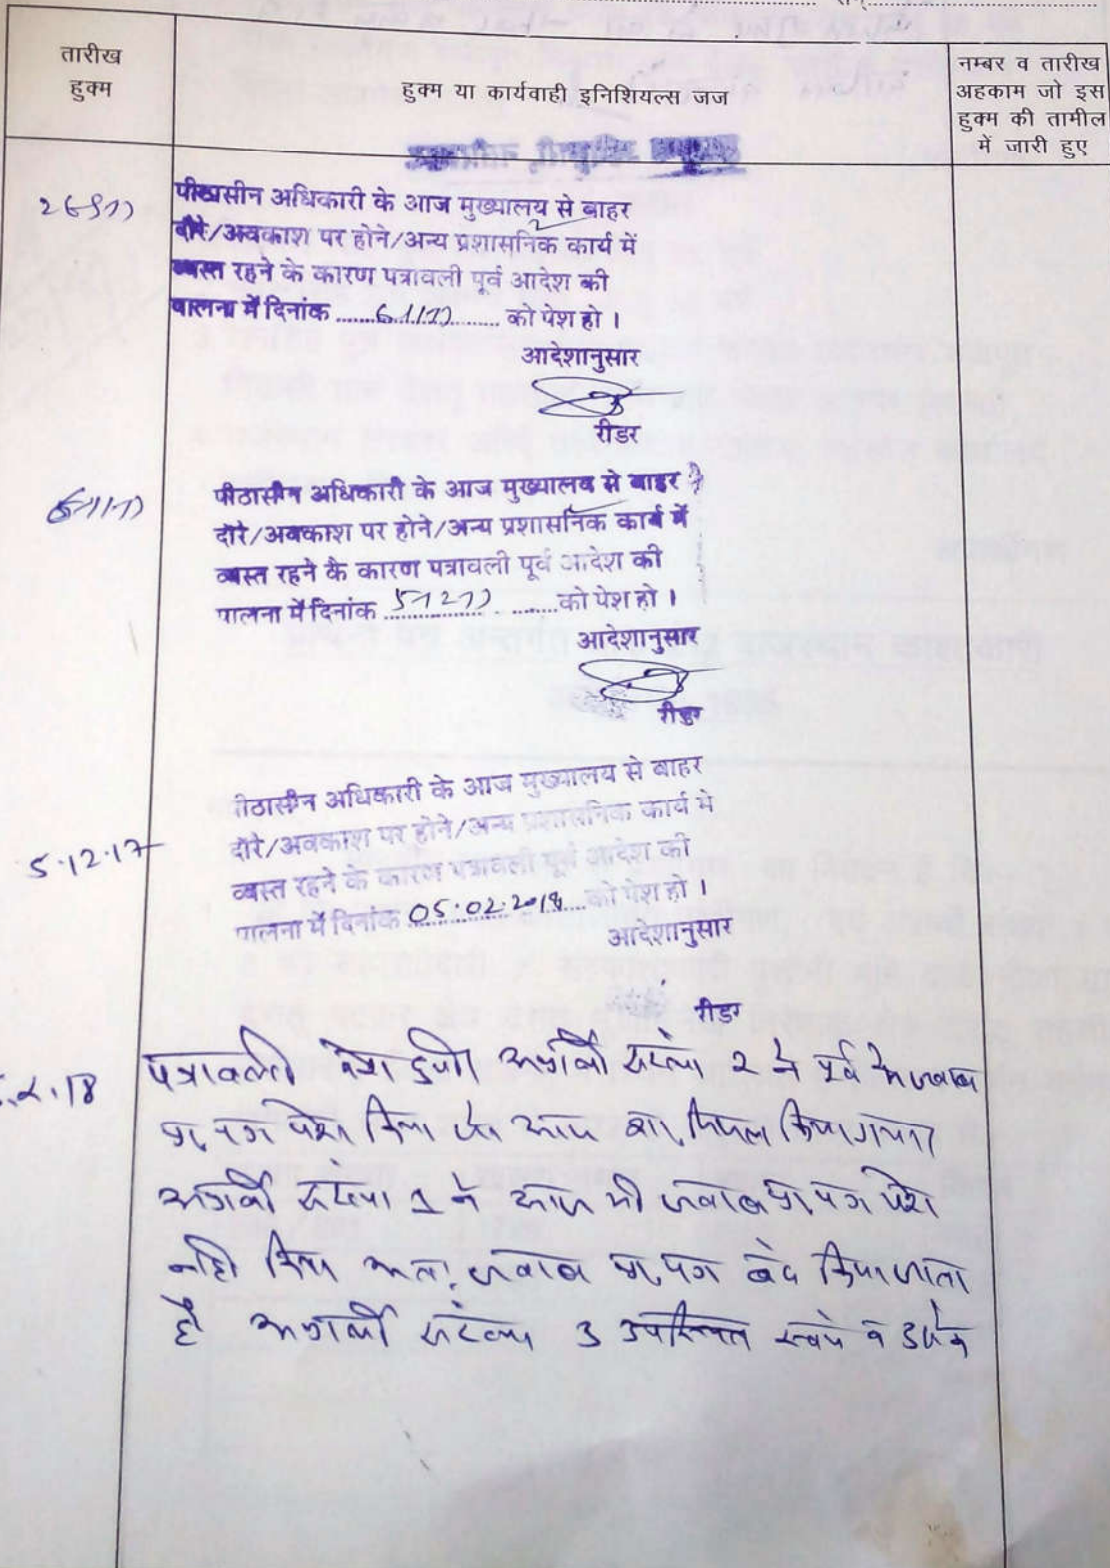 तारीख
हुक्म
हुक्म या कार्यवाही इनिशियल्स जज
नम्बर व तारीख
अहकाम जो इस
हुक्म की तामील
में जारी हुए
पीठासीन अधिकारी के आज मुख्यालय से बाहर
दौरे/अवकाश पर होने/अन्य प्रशासनिक कार्य में
व्यस्त रहने के कारण पत्रावली पूर्व आदेश की
पालना में दिनांक 6/11/17 को पेश हो ।
आदेशानुसार
रीडर
6-11-17
पीठासीन अधिकारी के आज मुख्यालय से बाहर
दौरे/अवकाश पर होने/अन्य प्रशासनिक कार्य में
व्यस्त रहने के कारण पत्रावली पूर्व आदेश की
पालना में दिनांक 5-12-17 को पेश हो ।
आदेशानुसार
रीडर
5.12.17
पीठासीन अधिकारी के आज मुख्यालय से बाहर
दौरे/अवकाश पर होने/अन्य प्रशासनिक कार्य में
व्यस्त रहने के कारण पत्रावली पूर्व आदेश की
पालना में दिनांक 05.02.2018 को पेश हो ।
आदेशानुसार
रीडर
पत्रावली पेश हुयी अप्रार्थी संख्या 2 ने पूर्व में जवाब
पेश किया जो आज शा. मिसल किया गया
अप्रार्थी संख्या 1 ने आज भी जवाब प्रा. पत्र पेश
नही किया अतः जवाब प्रा. पत्र बंद किया जाता
है अप्रार्थी संख्या 3 उपस्थित स्वयं व उनके